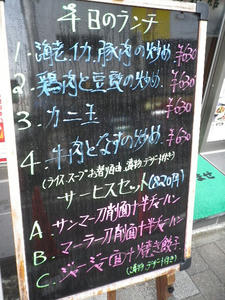 本日のランチ
1. 海老、イカ、豚肉の炒め ¥630
2. 鶏肉と豆腐の炒め ¥630
3. カニ玉 ¥630
4. 牛肉となすの炒め ¥630
(ライス、スープお替り自由、漬物、デザート付き)
サービスセット(820円)
A. サンマー刀削面十半チャーハン
B. マーラー刀削面十半チャーハン
C. ジャージャー面十焼き餃子
(漬物、デザート付き)